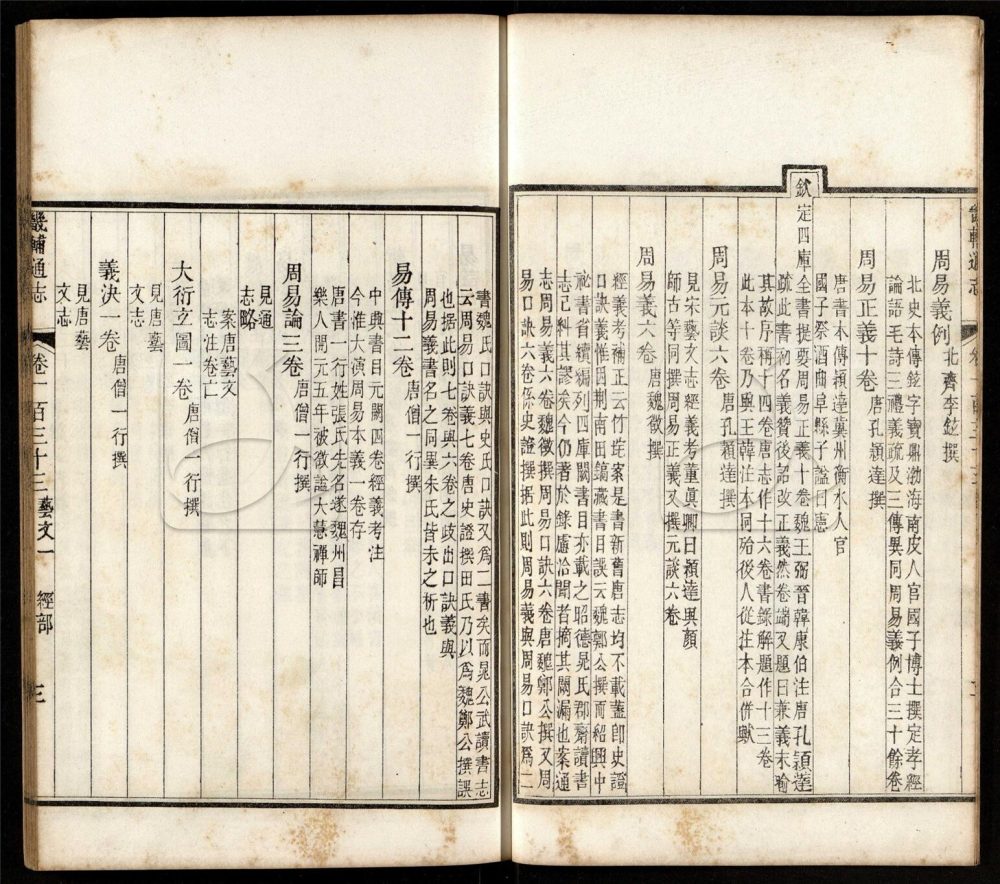 畿輔通志
周易義例 北齊李鉉撰
北史本傳鉉字寶鼎渤海南皮人官國子博士撰定孝經
論語毛詩三禮義疏及三傳異同周易義例合三十餘卷
周易正義十卷 唐孔穎達撰
唐書本傳穎達冀州衡水人官
國子祭酒曲阜縣子諡曰憲
欽定四庫全書提要周易正義十卷魏王弼晉韓康伯注唐孔穎達
疏此書初名義贊後詔改正義然卷端又題曰兼義未喻
其故序稱十四卷唐志作十六卷書錄解題作十三卷
此本十卷乃與王韓注本同殆後人從注本合併歟
周易元談六卷 唐孔穎達撰
見宋藝文志經義考董真卿曰穎達與顏
師古等同撰周易正義又撰元談六卷
周易義六卷 唐魏徵撰
經義考補正云竹垞案是書新舊唐志均不載蓋卽史證
口訣義惟四荆南田鎬藏書目談云魏鄭公撰而紹興中
祕書省續編列四庫闕書目亦載之昭德晁氏郡齋讀書
志已糾其謬矣今仍著於錄慮洽聞者摘其闕漏也案通
志周易義六卷魏徵撰周易口訣六卷唐魏鄭公撰又周
易口訣六卷係史證撰據此則周易義與周易口訣爲二
書魏氏口訣與史氏口訣又爲二書矣而晁公武讀書志
云周易口訣義七卷唐史證撰田氏乃以爲魏鄭公撰誤
也據此則七卷與六卷之歧出口訣義與
周易義書名之同異朱氏皆未之析也
易傳十二卷 唐僧一行撰
中興書目元闕四卷經義考注
今惟大演周易本義一卷存
唐書一行姓張氏先名遂魏州昌
樂人開元五年被徵諡大慧禪師
周易論三卷 唐僧一行撰
見通
志略
案唐藝文
志注卷亡
大衍立圖一卷 唐僧一行撰
見唐藝
文志
義決一卷 唐僧一行撰
見唐藝
文志
畿輔通志 卷一百三十三 藝文一 經部 三